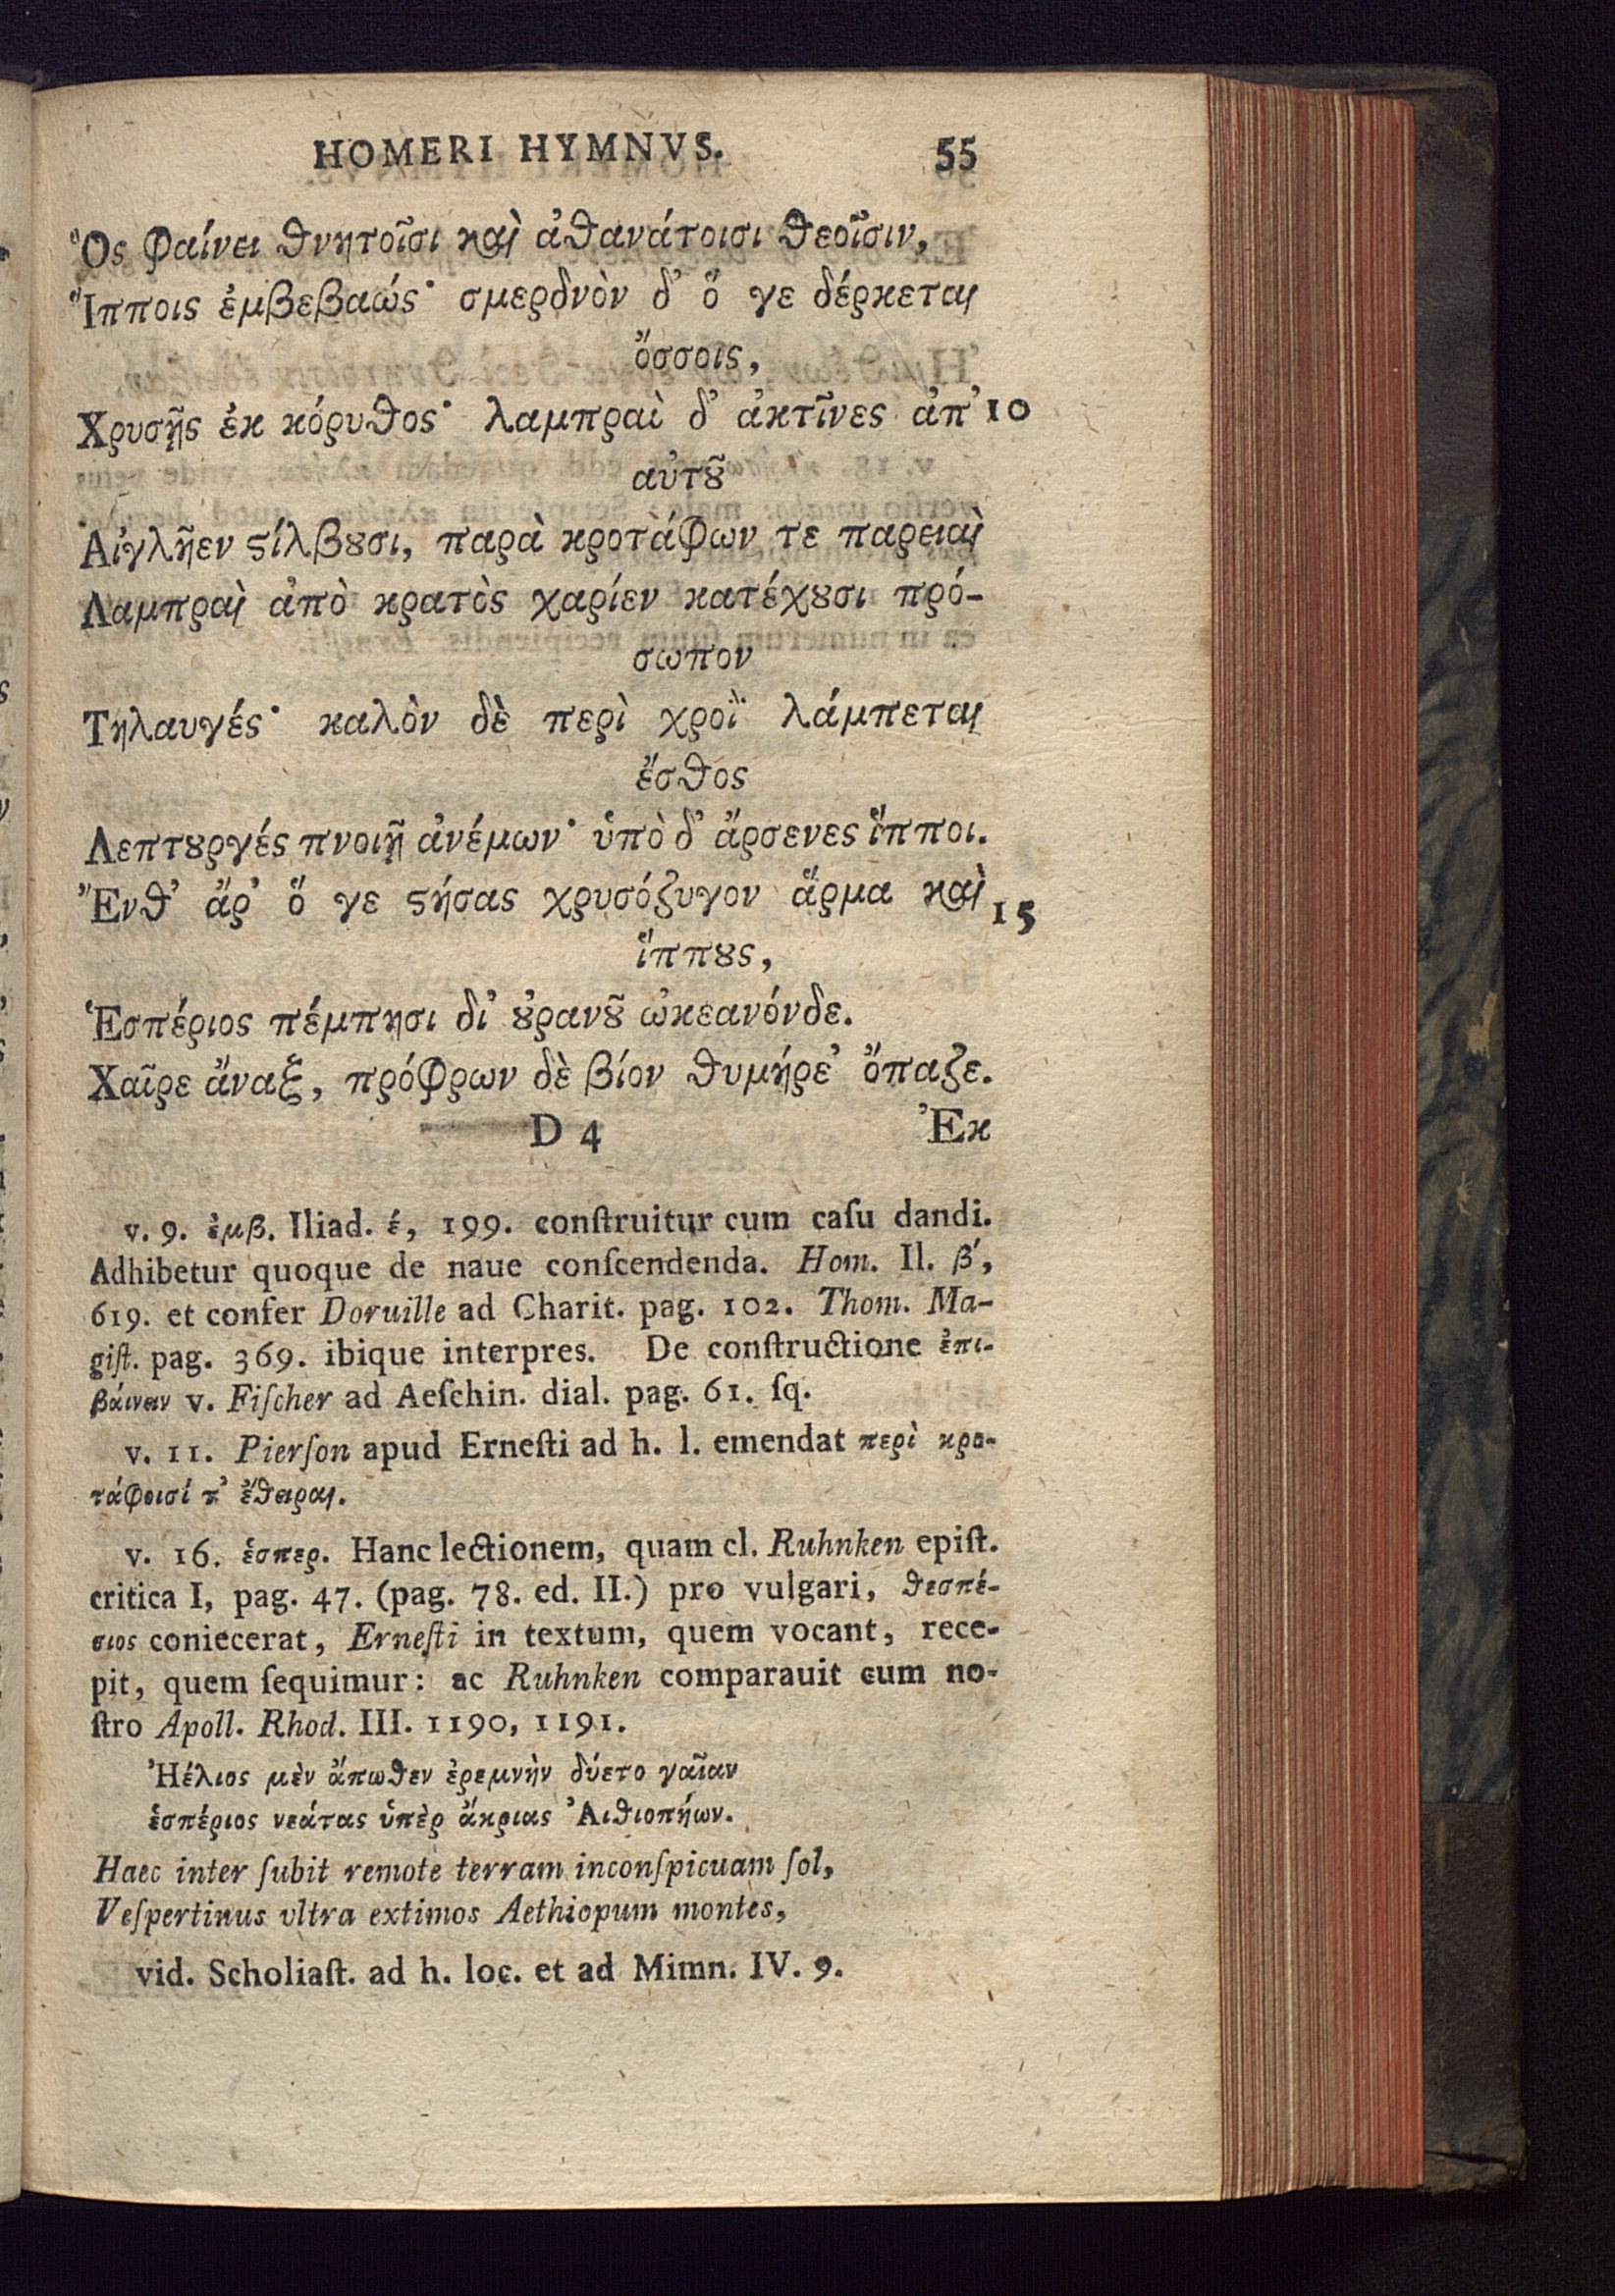 HOMERI HYMNVS. 55
Ὃς φαίνει θνητοῖσι καὶ ἀθανάτοισι θεοῖσιν,
Ἵπποις ἐμβεβαώς· σμερδνὸν δ' ὅ γε δέρκεται
ὄσσοις,
Χρυσῆς ἐκ κόρυθος· λαμπραὶ δ' ἀκτῖνες ἀπ' 10
αὐτȣ͂
Αἰγλῆεν ϛίλβȣσι, παρὰ κροτάφων τε παρειαὶ
Λαμπραὶ ἀπὸ κρατὸς χαρίεν κατέχȣσι πρό-
σωπον
Τηλαυγές· καλὸν δὲ περὶ χροῒ λάμπεται
ἔσθος
Λεπτȣργές πνοιῇ ἀνέμων· ὑπὸ δ' ἄρσενες ἵπποι.
Ἔνθ' ἄρ' ὅ γε ϛήσας χρυσόζυγον ἅρμα καὶ 15
ἵππȣς,
Ἑσπέριος πέμπησι δι' ȣ̓ρανȣ͂ ὠκεανόνδε.
Χαῖρε ἄναξ, πρόφρων δὲ βίον θυμήρε' ὄπαζε.
D 4 Ἐκ
v. 9. ἐμβ. Iliad. έ, 199. conſtruitur cum caſu dandi.
Adhibetur quoque de naue conſcendenda. Hom. Il. β',
619. et confer Doruille ad Charit. pag. 102. Thom. Ma-
giſt. pag. 369. ibique interpres. De conſtructione ἐπι-
βάινειν v. Fiſcher ad Aeſchin. dial. pag. 61. ſq.
v. 11. Pierſon apud Erneſti ad h. l. emendat περὶ κρο-
τάφοισί τ' ἔθειραι.
v. 16. ἑσπερ. Hanc lectionem, quam cl. Ruhnken epiſt.
critica I, pag. 47. (pag. 78. ed. II.) pro vulgari, θεσπέ-
σιος coniecerat, Erneſti in textum, quem vocant, rece-
pit, quem ſequimur: ac Ruhnken comparauit cum no-
ſtro Apoll. Rhod. III. 1190, 1191.
Ἠέλιος μὲν ἄπωθεν ἐρεμνὴν δύετο γαῖαν
ἑσπέριος νεάτας ὑπὲρ ἄκριας Ἀιθιοπήων.
Haec inter ſubit remote terram inconſpicuam ſol,
Veſpertinus vltra extimos Aethiopum montes,
vid. Scholiaſt. ad h. loc. et ad Mimn. IV. 9.